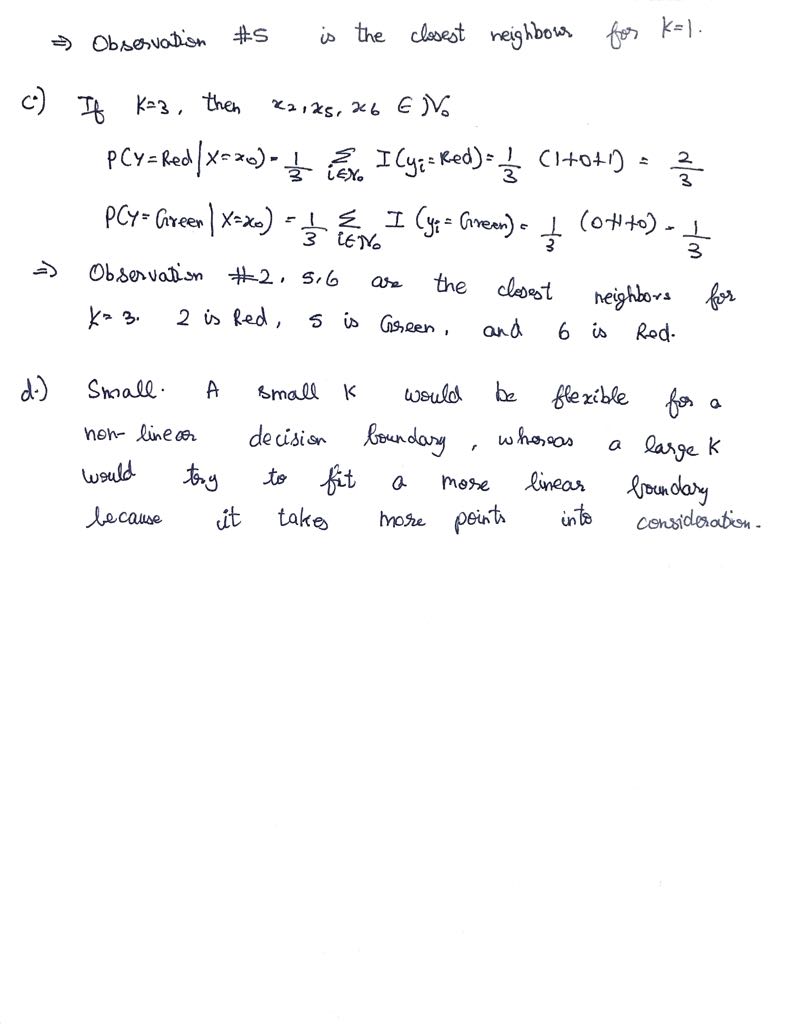 ⇒ Observation #5 is the closest neighbour for K=1.
c.) If K=3, then x₂, x₅, x₆ ∈ N₀
P(Y=Red | X=x₀) = 1/3 Σ_{i∈N₀} I(yᵢ = Red) = 1/3 (1+0+1) = 2/3
P(Y=Green | X=x₀) = 1/3 Σ_{i∈N₀} I(yᵢ = Green) = 1/3 (0+1+0) = 1/3
⇒ Observation #2, 5,6 are the closest neighbors for
K=3. 2 is Red, 5 is Green, and 6 is Red.
d.) Small. A small K would be flexible for a
non-linear decision boundary, whereas a large K
would try to fit a more linear boundary
because it takes more points into consideration.